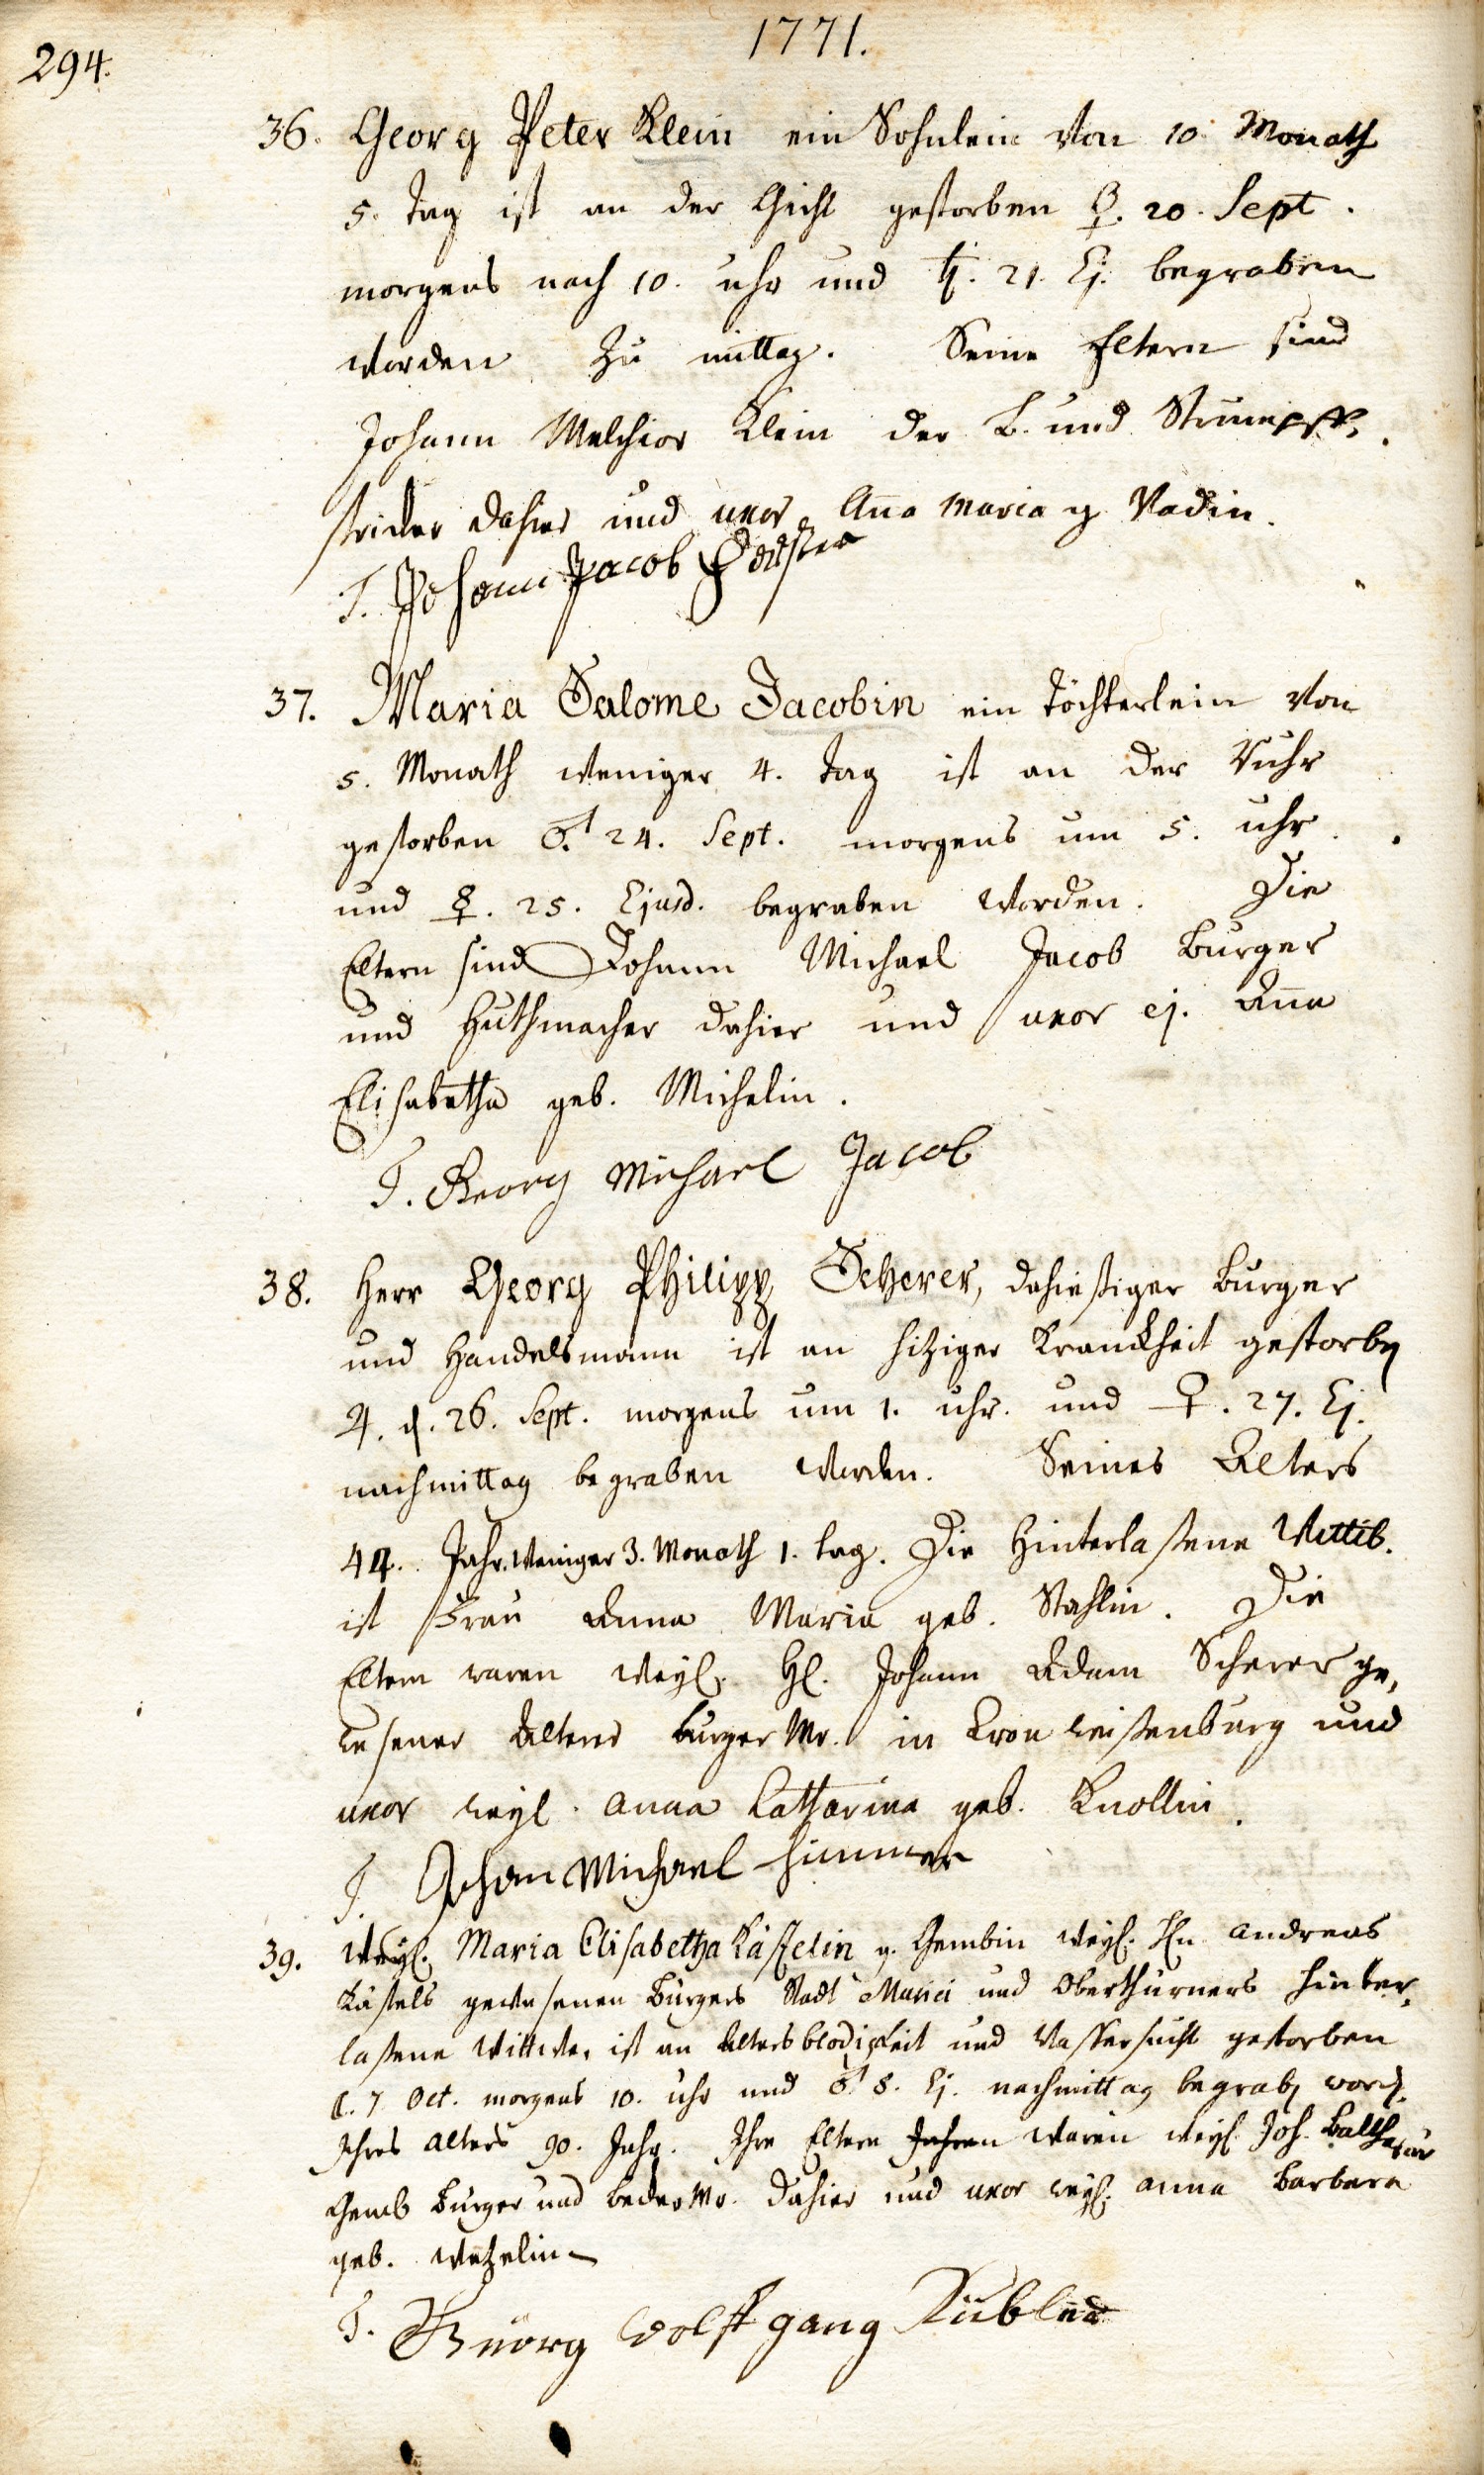 294.
1771.
36. Georg Peter Klein ein Söhnlein von 10. Monath
5. Tag ist an der Gicht gestorben ♀. 20. Sept.
morgens nach 10. uhr und ♄. 21. Ej. begraben
worden zu mittag. Seine Eltern sind
Johann Melchior Klein der B. und Strumpff,
stricker dahier und uxor Aña Maria g. Vadin.
T. Johann Jacob
37. Maria Salome Jacobin ein Töchterlein von
5. Monath weniger 4. Tag ist an der Ruhr
gestorben ♂. 24. Sept. morgens um 5. uhr
und ☿. 25. Ejusd. begraben worden. Die
Eltern sind Johann Michael Jacob Burger
und Huthmacher dahier und uxor ej. Aña
Elisabetha geb. Michelin.
T. Georg Michael Jacob
38. Herr Georg Philipp Scherer, dahiesiger Burger
und Handelsmann ist an hitziger Kranckheit gestorbe
♃. d. 26. Sept. morgens um 1. uhr. und ♀. 27. Ej.
nachmittag begraben worden. Seines Alters
44. Jahr. weniger 3. Monath 1. tag. Die Hinterlaßene Wittib.
ist Frau Anna Maria geb. Stahlin. Die
Eltern waren weyl. H. Johann Adam Scherer ge,
wesener Alterer Burger Mr. in Cron weißenburg und
uxor weyl. Anna Catharina geb. Knollin.
T. Johan Michael Himmer
39. Weyl. Maria Elisabetha Kästelin g. Gembin weyl. Hn Andreas
Kästels gewesenen Burgers Stadt Musici und Oberthürners hinter,
laßene Wittwe, ist an Altersblödigkeit und Wassersucht gestorben
☾. 7 Oct. morgens 10. uhr und ♂. 8. Ej. nachmittag begrab word.
Ihres Alters 90. Jahr. Ihre Eltern Jahren waren weyl. Joh. Balthasar
Gemb Burger und Mr. dahier und uxor weyl. Anna Barbara
geb. Wetzelin
T. Geörg Wolffgang Kübler